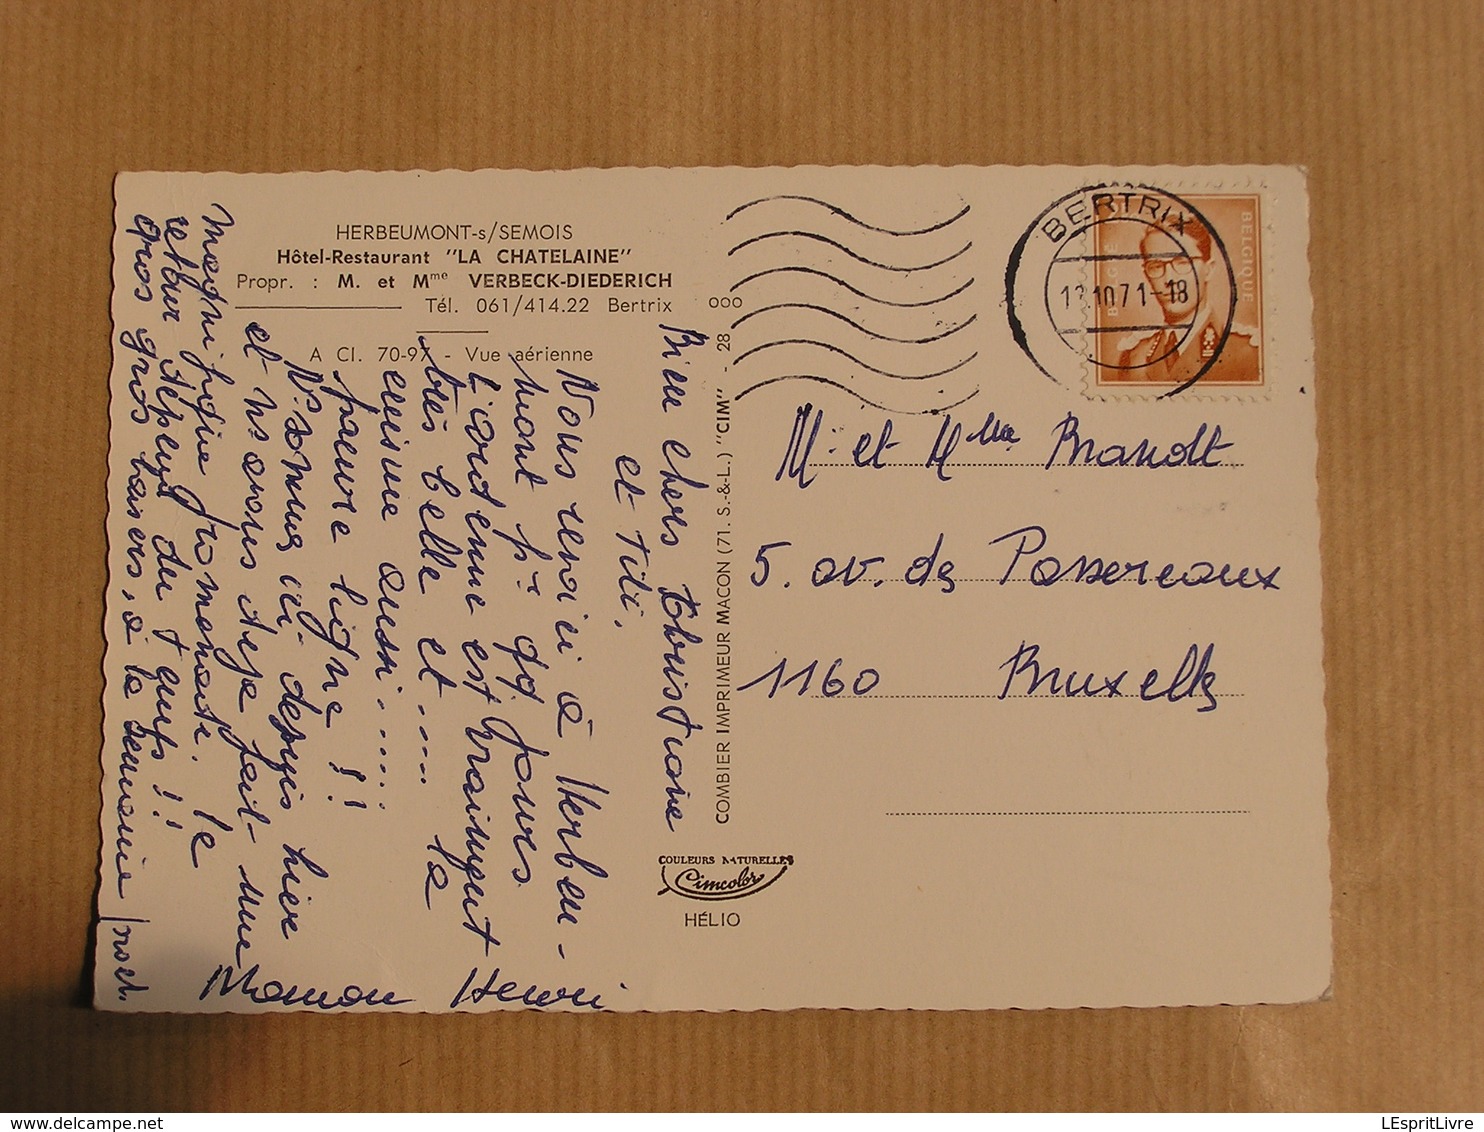 HERBEUMONT-s/SEMOIS
Hôtel-Restaurant "LA CHATELAINE"
Propr. : M. et Mme VERBECK-DIEDERICH
Tél. 061/414.22 Bertrix
A Cl. 70-97 - Vue aérienne
Bien chers Christiane
et Titi.
Nous revoici à Herbeu-
mont pr qq jours.
L'ardenne est vraiment
très belle et .... la
cuisine aussi......
pauvre ligne !!
Ns sommes ici depuis hier
et ns avons deja fait une
magnifique promenade. le
retour dépend du temps !!
Gros gros baisers, à la semaine proch.
Maman Henri
COMBIER IMPRIMEUR MACON (71. S.-&-L.) "CIM" - 28
ooo
COULEURS NATURELLES
Cimcolor
HÉLIO
BERTRIX
10.71-18
BELGIE
BELGIQUE
Mr et Mme Brandt
5. av. des Passereaux
1160 Bruxelles
LEspritLivre